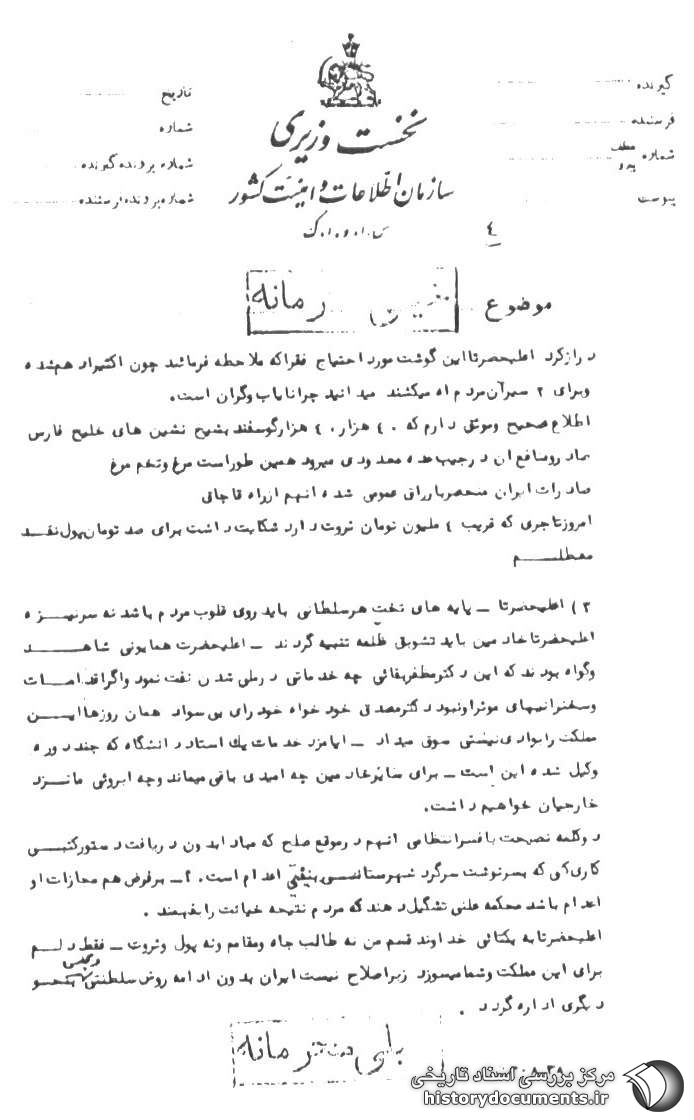 گیرنده
فرستنده
شماره عطف پیرو
پیوست
تاریخ
شماره
شماره پرونده گیرنده
شماره پرونده فرستنده
نخست وزیری
سازمان اطلاعات و امنیت کشور
س.ا.و.ا.ک
٤
موضوع
دراز کرد اعلیحضرتا این گوشت مورد احتیاج فقرا که ملاحظه فرمائید چون اکثیراد هم شده
و برای ۲ سیر آن مردم اه میکشند میدانید چرا نایاب و گران است.
اطلاع صحیح و موثق دارم که ٤۰ هزار، ٤۰ هزار گوسفند بشیخ نشین های خلیج فارس
صادر و منافع ان در جیب عده معدودی میرود همین طور است مرغ و تخم مرغ
صادرات ایران منحصر بارزاق عمومی شده انهم از راه قاچاق
امروز تاجری که قریب ٤ ملیون تومان ثروت دارد شکایت داشت برای صد تومان پول نقد
معطلم
۳) اعلیحضرتا ــ پایه های تخت هر سلطانی باید روی قلوب مردم باشد نه سرنیزه
اعلیحضرتا خادمین باید تشویق ظلمه تنبیه گردند ــ اعلیحضرت همایونی شاهد
و گواه بودند که این دکتر مظفر بقائی چه خدماتی در ملی شدن نفت نمود و اگر اقدامات
و سخنرانیهای موثر او نبود دکتر مصدق خود خواه خود رای بی سواد همان روزها این
مملکت را بوادی نیستی سوق میداد ــ ایا مزد خدمات یك استاد دانشگاه که چند دوره
وکیل شده این است ــ برای سایر خادمین چه امیدی باقی میماند و چه ابروئی ما نزد
خارجیان خواهیم داشت.
دو کلمه نصیحت با فسر انتظامی انهم در موقع صلح که مبادا بدون دریافت دستور کتبی
کاری کنی که بسرنوشت سرگرد شهرستانی اعدام است. ــ بر فرض هم مجازات او
اعدام باشد محکمه علنی تشکیل دهند که مردم نتیجه خیانت را بفهمند.
اعلیحضرتا به یکتائی خداوند قسم من نه طالب جاه و مقامم و نه پول و ثروت ــ فقط دلم
برای این مملکت و شما میسوزد زیرا صلاح نیست ایران بدون ادامه روش سلطنتی بنحو
دیگری اداره گردد.
مرکز بررسی اسناد تاریخی
historydocuments.ir